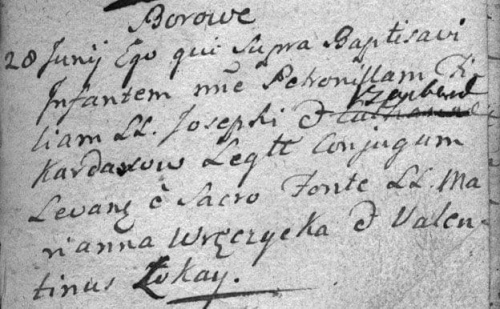 Borowe
28 Junij Ego qui Supra Baptisavi
Infantem nne Petronillam Fi
liam LL. Josephi &
Kardasow Legtt Conjugum
Levang è Sacro Fonte LL. Ma
rianna Wręczycka & Valen-
tinus Łokay.